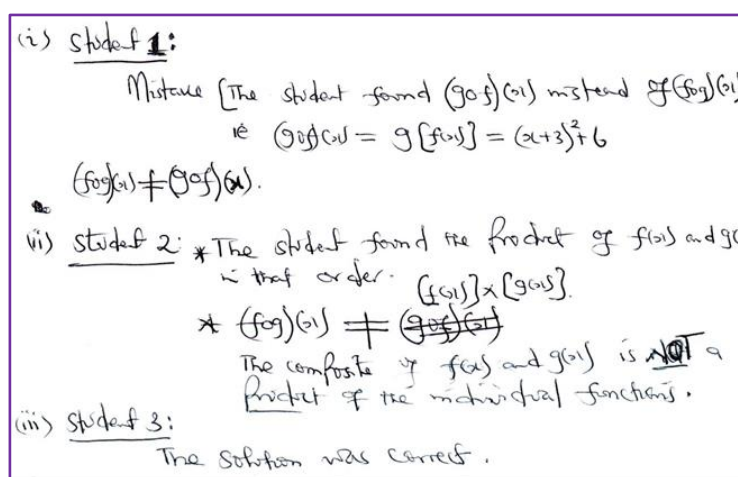 (i) Student 1:
Mistake [The student found (gof)(x) instead of (fog)(x)
ie (gof)(x) = g[f(x)] = (x+3)²+6
(fog)(x) ≠ (gof)(x).
(ii) Student 2: * The student found the product of f(x) and g(
in that order. [f(x)]×[g(x)].
* (fog)(x) ≠ (gof)(x)
The composite of f(x) and g(x) is NOT a
product of the individual functions.
(iii) Student 3:
The solution was correct.